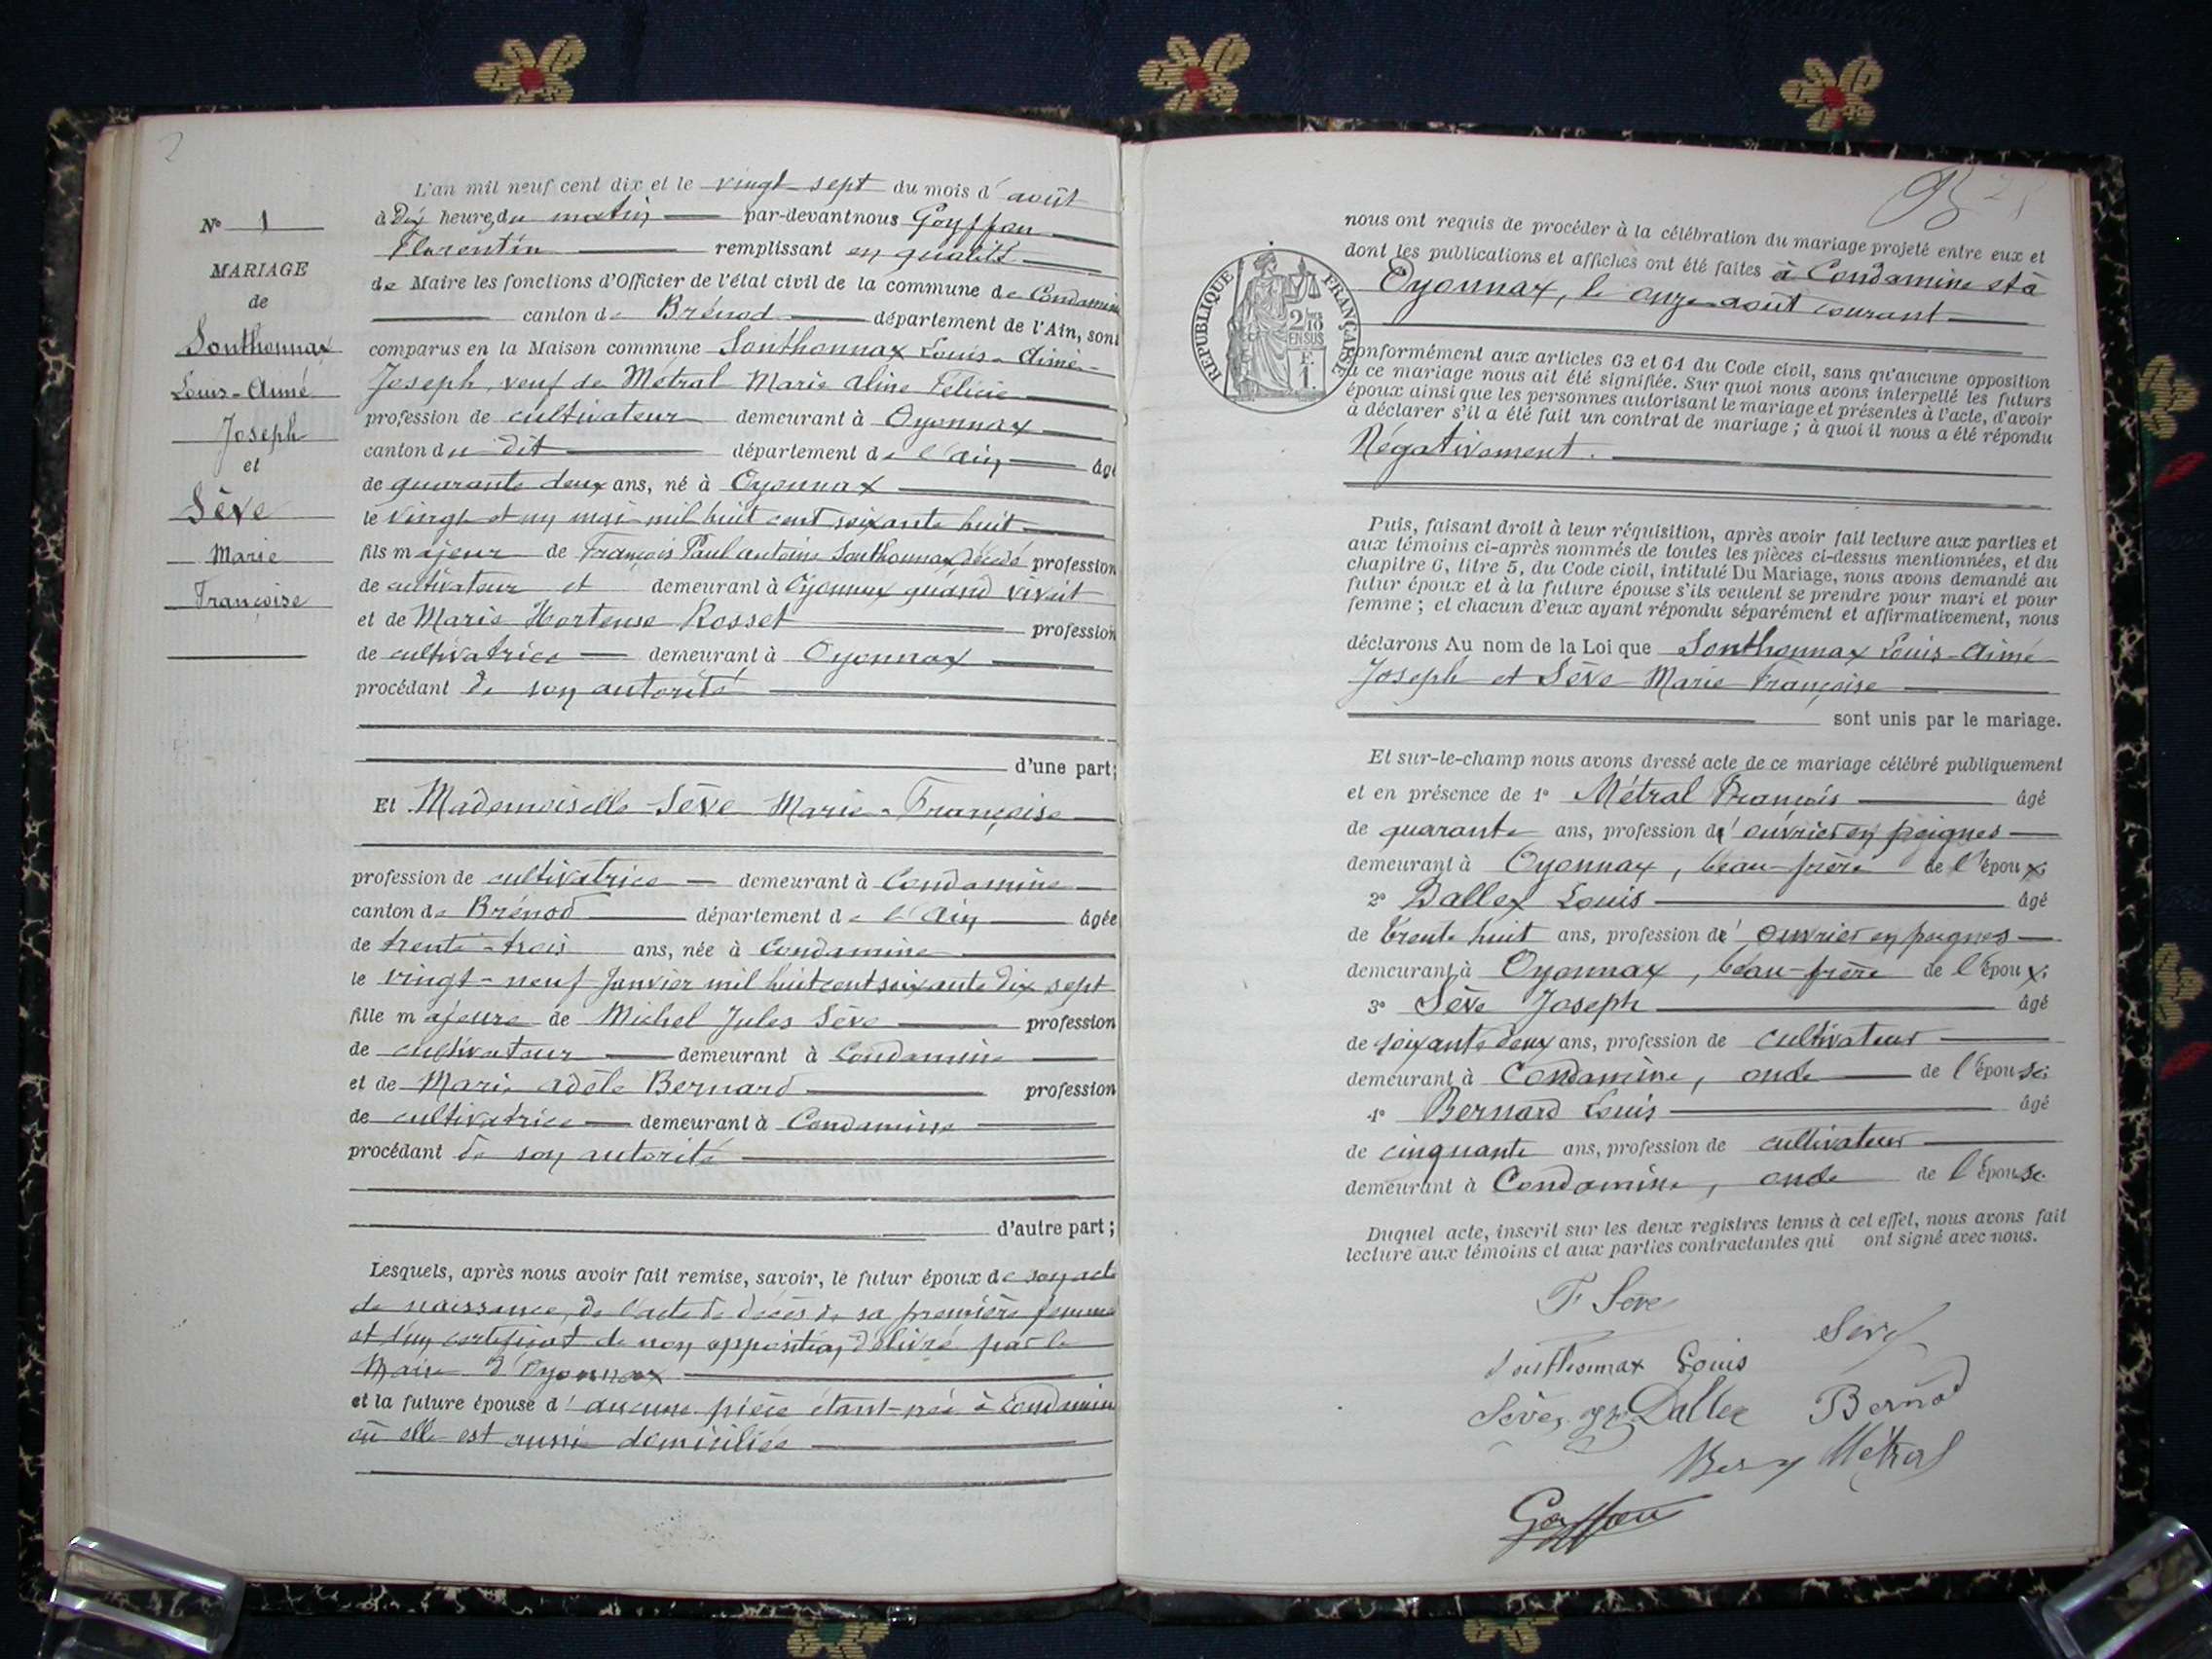 2
L'an mil neuf cent dix et le vingt-sept du mois d'août
N° 1
à Dix heures du matin par-devant nous Goyffon
Florentin remplissant en qualité
MARIAGE
de Maire les fonctions d'Officier de l'état civil de la commune de Condamine
de
canton de Brénod département de l'Ain, sont
Sonthonnax
comparus en la Maison commune Sonthonnax Louis-Aimé-
Louis-Aimé
Joseph, veuf de Métral Marie Aline Félicie
profession de cultivateur demeurant à Oyonnax
Joseph
canton du dit département de l'Ain âgé
et
de quarante deux ans, né à Oyonnax
Sève
le vingt et un mai mil huit cent soixante huit
Marie
fils majeur de François Paul Antoine Sonthonnax décédé profession
de cultivateur et demeurant à Oyonnax quand vivait
Françoise
et de Marie Hortense Rosset profession
de cultivatrice demeurant à Oyonnax
procédant de son autorité
d'une part;
Et Mademoiselle Sève Marie-Françoise
profession de cultivatrice demeurant à Condamine
canton de Brénod département de l'Ain âgée
de trente-trois ans, née à Condamine
le vingt-neuf Janvier mil huit cent soixante dix sept
fille majeure de Michel Jules Sève profession
de cultivateur demeurant à Condamine
et de Marie Adèle Bernard profession
de cultivatrice demeurant à Condamine
procédant de son autorité
d'autre part;
Lesquels, après nous avoir fait remise, savoir, le futur époux de son acte
de naissance, de l'acte de décès de sa première femme
et d'un certificat de non opposition délivré par le
Maire d'Oyonnax
et la future épouse d'aucune pièce étant née à Condamine
où elle est aussi domiciliée
nous ont requis de procéder à la célébration du mariage projeté entre eux et
dont les publications et affiches ont été faites à Condamine et à
Oyonnax, le onze août courant
RÉPUBLIQUE FRANÇAISE
2/10
EN SUS
F.
1.
conformément aux articles 63 et 64 du Code civil, sans qu'aucune opposition
à ce mariage nous ait été signifiée. Sur quoi nous avons interpellé les futurs
époux ainsi que les personnes autorisant le mariage et présentes à l'acte, d'avoir
à déclarer s'il a été fait un contrat de mariage; à quoi il nous a été répondu
Négativement.
Puis, faisant droit à leur réquisition, après avoir fait lecture aux parties et
aux témoins ci-après nommés de toutes les pièces ci-dessus mentionnées, et du
chapitre 6, titre 5, du Code civil, intitulé Du Mariage, nous avons demandé au
futur époux et à la future épouse s'ils veulent se prendre pour mari et pour
femme; et chacun d'eux ayant répondu séparément et affirmativement, nous
déclarons Au nom de la Loi que Sonthonnax Louis-Aimé-
Joseph et Sève Marie Françoise
sont unis par le mariage.
Et sur-le-champ nous avons dressé acte de ce mariage célébré publiquement
et en présence de 1° Métral François âgé
de quarante ans, profession d'ouvrier en peignes
demeurant à Oyonnax, beau-frère de l'époux
2° Dallex Louis âgé
de trente huit ans, profession d'ouvrier en peignes
demeurant à Oyonnax, beau-frère de l'époux
3° Sève Joseph âgé
de soixante deux ans, profession de cultivateur
demeurant à Condamine, oncle de l'épouse
4° Bernard Louis âgé
de cinquante ans, profession de cultivateur
demeurant à Condamine, oncle de l'épouse
Duquel acte, inscrit sur les deux registres tenus à cet effet, nous avons fait
lecture aux témoins et aux parties contractantes qui ont signé avec nous.
F Sève
Sève
Sonthonnax Louis
Sève Dallex Bernard
Métral
Goyffon